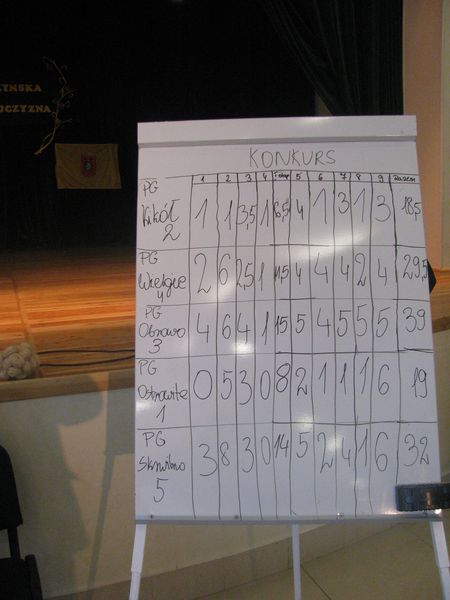 YŃSKA
OJCZYZNA
KONKURS
1 2 3 4 I etap 5 6 7 8 9 Razem
PG
Kikół 1 1 3,5 1 6,5 4 1 3 1 3 18,5
2
PG
Wielgie 2 6 2,5 1 11,5 4 4 4 2 4 29,5
4
PG
Obrowo 4 6 4 1 15 5 4 5 5 5 39
3
PG
Ostrowite 0 5 3 0 8 2 1 1 1 6 19
1
PG
Skrwilno 3 8 3 0 14 5 2 4 1 6 32
5